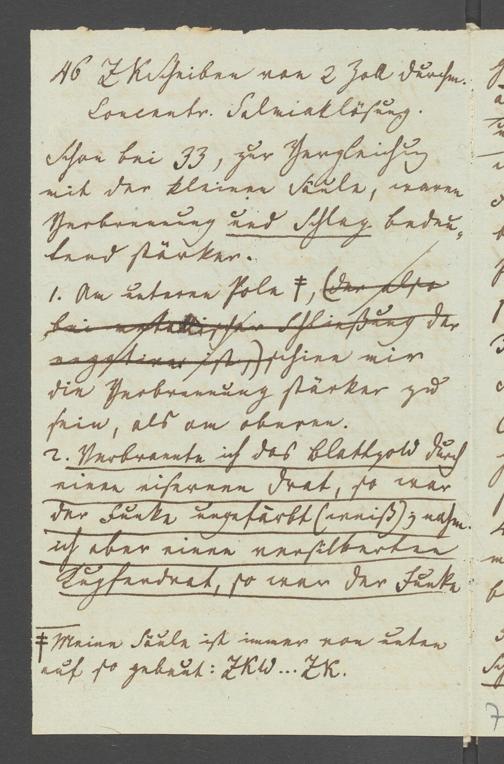 46 ZKScheiben von 2 Zoll Durchm.
Concentr. Salmiaklösung.
Schon bei 33, zur Vergleichung
mit der kleinen Säule, waren
Verbrennung und Schlag bedeu-
tend stärker.
1. Am unteren Pole ‡, (der also
bei metallischer Schließung der
negative ist,) schien mir
die Verbrennung stärker zu
sein, als am oberen.
2. Verbrannte ich das Blattgold durch
einen eisernen Drat, so war
der Funke ungefärbt (weiß); nahm
ich aber einen versilberten
Kupferdrat, so war der Funke
‡ Meine Säule ist immer von unten
auf so gebaut: ZKW...ZK.
7